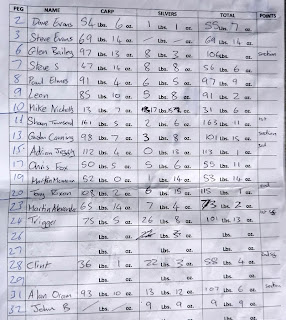 PEG NAME CARP SILVERS TOTAL POINTS
2 Dave Evans 54 Lbs. 6 oz. 1 Lbs. 1 oz. 55 Lbs. 7 oz.
3 Steve Evans 69 Lbs. 14 oz. / Lbs. / oz. 69 Lbs. 14 oz.
6 Glen Bailey 97 Lbs. 13 oz. 8 Lbs. 3 oz. 106 Lbs. oz. section
7 Steve S 47 Lbs. 14 oz. 8 Lbs. 8 oz. 56 Lbs. 6 oz.
8 Paul Elmes 91 Lbs. 4 oz. 6 Lbs. 5 oz. 97 Lbs. 9 oz.
9 Leon 85 Lbs. 10 oz. 5 Lbs. 8 oz. 91 Lbs. 2 oz.
10 Mike Nicholls 13 Lbs. 7 oz. Lbs. 15 oz. 31 Lbs. 6 oz.
11 Shaun Townsend 161 Lbs. 5 oz. 2 Lbs. 6 oz. 163 Lbs. 11 oz.
13 Canning 98 Lbs. 7 oz. 3 Lbs. 8 oz. 101 Lbs. 15 oz. section
15 Adrian 112 Lbs. 4 oz. 0 Lbs. 13 oz. 113 Lbs. 1 oz.
17 Chris Fox 50 Lbs. 5 oz. 5 Lbs. 6 oz. 55 Lbs. 11 oz.
19 Martin 52 Lbs. 0 oz. 1 Lbs. 14 oz. 53 Lbs. 14 oz.
20 Tony Rixon 108 Lbs. 2 oz. 6 Lbs. 15 oz. 115 Lbs. 1 oz.
23 Martin 65 Lbs. 14 oz. 7 Lbs. 4 oz. 73 Lbs. 2 oz.
24 Trigger 75 Lbs. 5 oz. 26 Lbs. 8 oz. 101 Lbs. 13 oz.
26 Lbs. oz. Lbs. oz. Lbs. oz.
27 Lbs. oz. Lbs. oz. Lbs. oz.
28 Clint 36 Lbs. 1 oz. 22 Lbs. 3 oz. 58 Lbs. 4 oz.
29 Lbs. oz. Lbs. oz. Lbs. oz.
31 Alan Oram 93 Lbs. 10 oz. 13 Lbs. 12 oz. 107 Lbs. 6 oz. section
32 John B / Lbs. / oz. 9 Lbs. 9 oz. 9 Lbs. 9 oz.